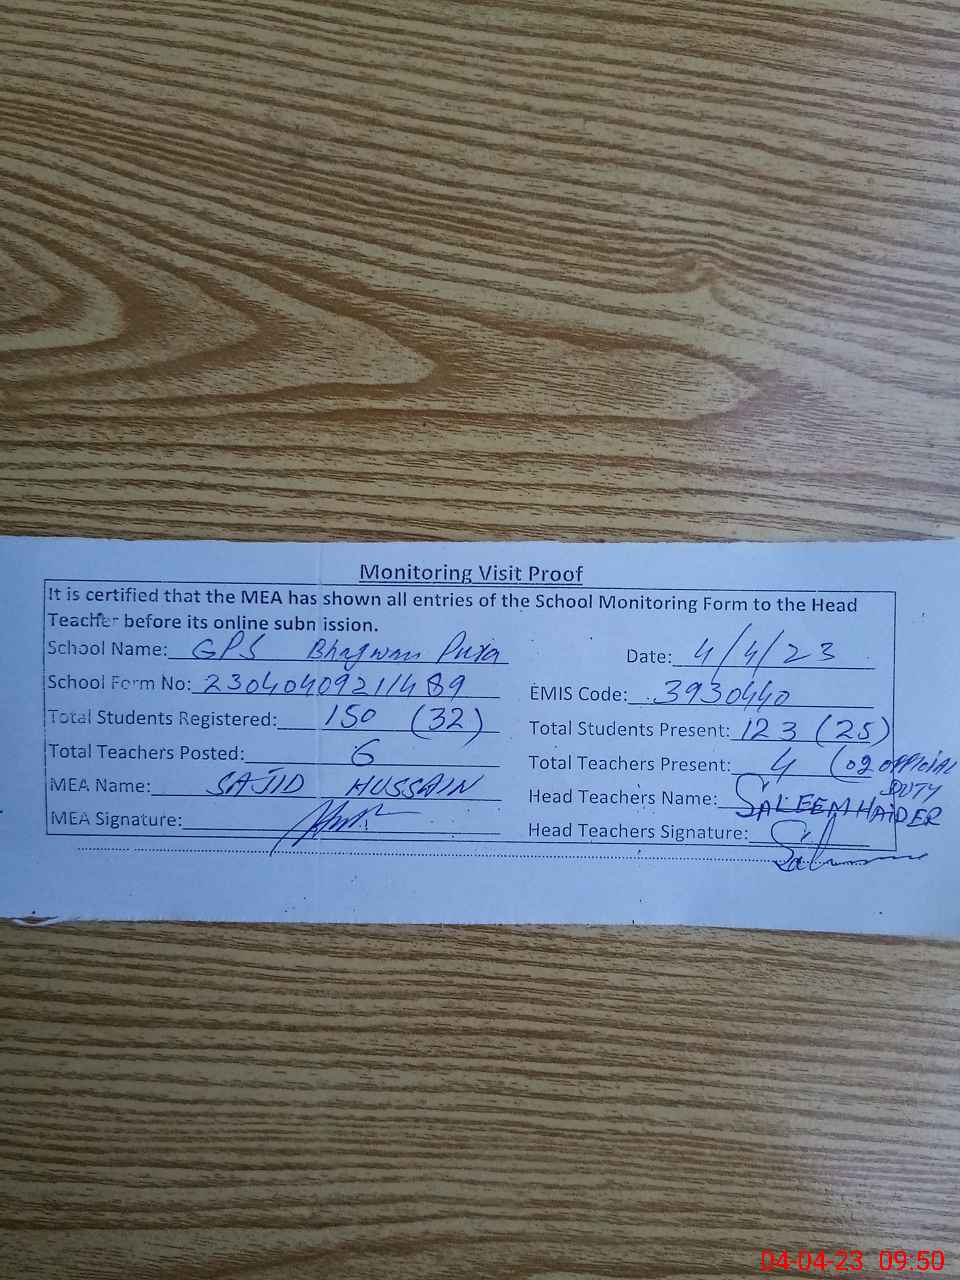 Monitoring Visit Proof
It is certified that the MEA has shown all entries of the School Monitoring Form to the Head
Teacher before its online subn ission.
School Name: GPS Bhagwan Pura Date: 4/4/23
School Form No: 23040409211489 EMIS Code: 3930440
Total Students Registered: 150 (32) Total Students Present: 123 (25)
Total Teachers Posted: 6 Total Teachers Present: 4 (02 OFFICIAL
DUTY
MEA Name: SAJID HUSSAIN Head Teachers Name: SALEEM HAIDER
MEA Signature: Head Teachers Signature:
04-04-23 09:50